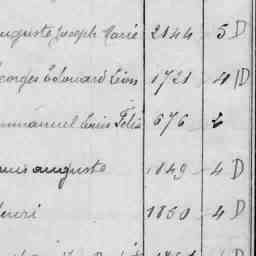 uguste Joseph Marie 2144 5 D
eorges Edouard Léon 1721 4 D
mmanuel Louis Félix 676 4
ouis auguste 1849 4 D
enri 1850 4 D